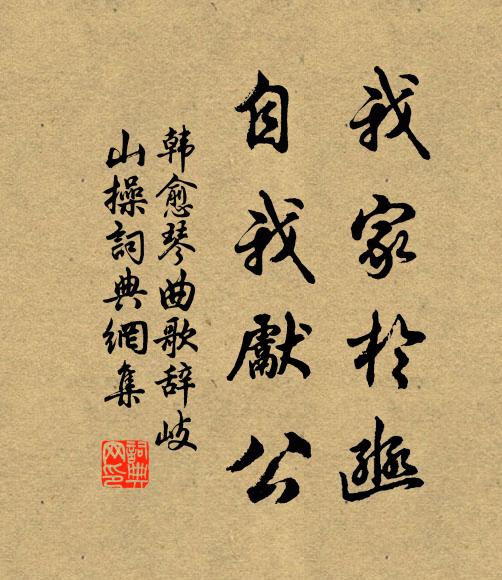 我家於豳
自我獻公
韓愈琴曲歌辞岐
山操詞典網集
詞典
网印